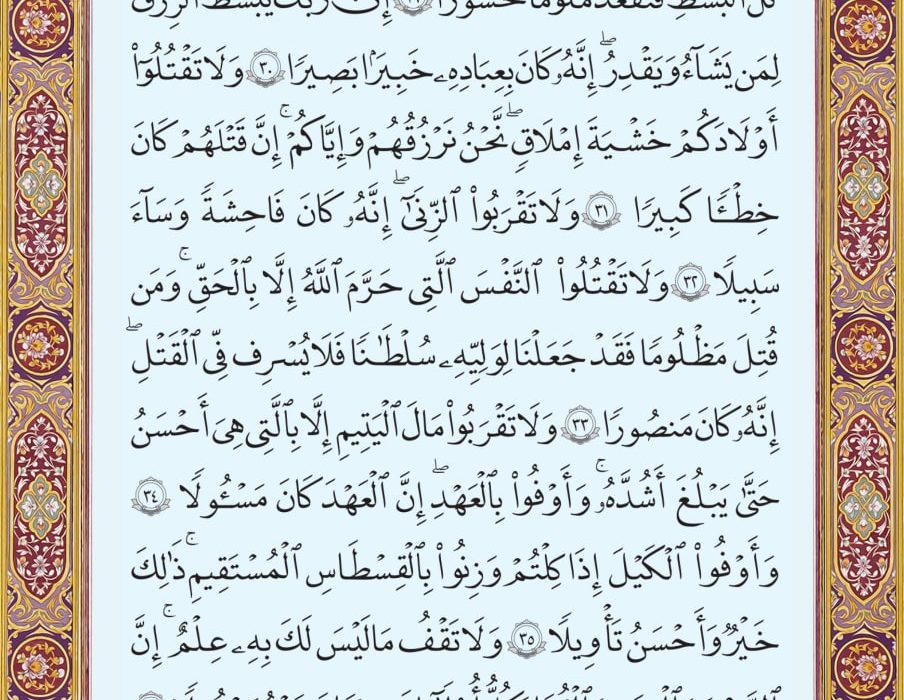 كُلَّ ٱلۡبَسۡطِ فَتَقۡعُدَ مَلُومٗا مَّحۡسُورًا ٢٩ إِنَّ رَبَّكَ يَبۡسُطُ ٱلرِّزۡقَ
لِمَن يَشَآءُ وَيَقۡدِرُۚ إِنَّهُۥ كَانَ بِعِبَادِهِۦ خَبِيرَۢا بَصِيرٗا ٣٠ وَلَا تَقۡتُلُوٓاْ
أَوۡلَٰدَكُمۡ خَشۡيَةَ إِمۡلَٰقٖۖ نَّحۡنُ نَرۡزُقُهُمۡ وَإِيَّاكُمۡۚ إِنَّ قَتۡلَهُمۡ كَانَ
خِطۡـٔٗا كَبِيرٗا ٣١ وَلَا تَقۡرَبُواْ ٱلزِّنَىٰٓۖ إِنَّهُۥ كَانَ فَٰحِشَةٗ وَسَآءَ
سَبِيلٗا ٣٢ وَلَا تَقۡتُلُواْ ٱلنَّفۡسَ ٱلَّتِي حَرَّمَ ٱللَّهُ إِلَّا بِٱلۡحَقِّۚ وَمَن
قُتِلَ مَظۡلُومٗا فَقَدۡ جَعَلۡنَا لِوَلِيِّهِۦ سُلۡطَٰنٗا فَلَا يُسۡرِف فِّي ٱلۡقَتۡلِۖ
إِنَّهُۥ كَانَ مَنصُورٗا ٣٣ وَلَا تَقۡرَبُواْ مَالَ ٱلۡيَتِيمِ إِلَّا بِٱلَّتِي هِيَ أَحۡسَنُ
حَتَّىٰ يَبۡلُغَ أَشُدَّهُۥۚ وَأَوۡفُواْ بِٱلۡعَهۡدِۖ إِنَّ ٱلۡعَهۡدَ كَانَ مَسۡـُٔولٗا ٣٤
وَأَوۡفُواْ ٱلۡكَيۡلَ إِذَا كِلۡتُمۡ وَزِنُواْ بِٱلۡقِسۡطَاسِ ٱلۡمُسۡتَقِيمِۚ ذَٰلِكَ
خَيۡرٞ وَأَحۡسَنُ تَأۡوِيلٗا ٣٥ وَلَا تَقۡفُ مَا لَيۡسَ لَكَ بِهِۦ عِلۡمٌۚ إِنَّ